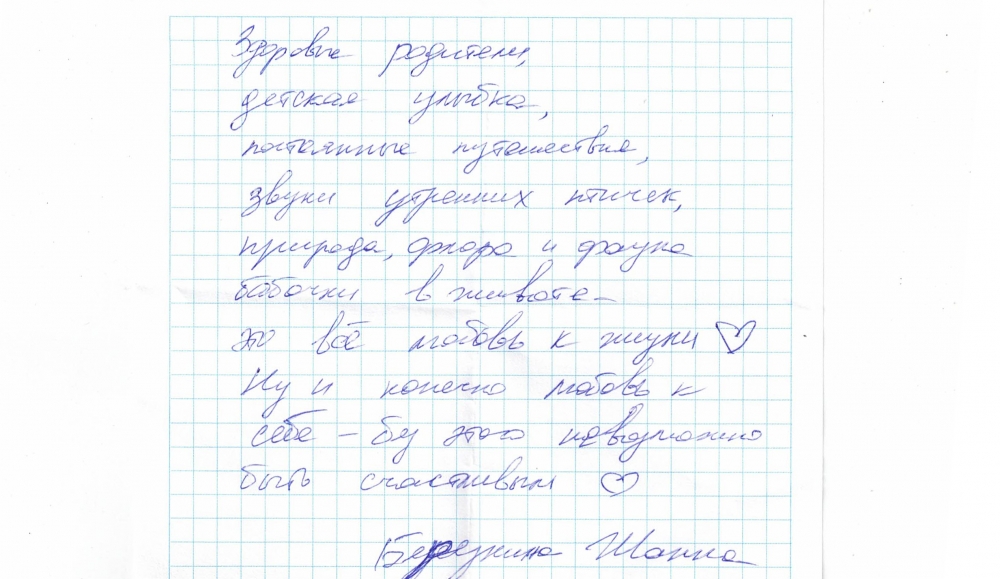 Здоровые родители,
детская улыбка,
постоянные путешествия,
звуки утренних птичек,
природа, флора и фауна
бабочки в животе –
это всё любовь к жизни ♡
Ну и конечно любовь к
себе – без этого невозможно
быть счастливым ♡
Березкина Жанна